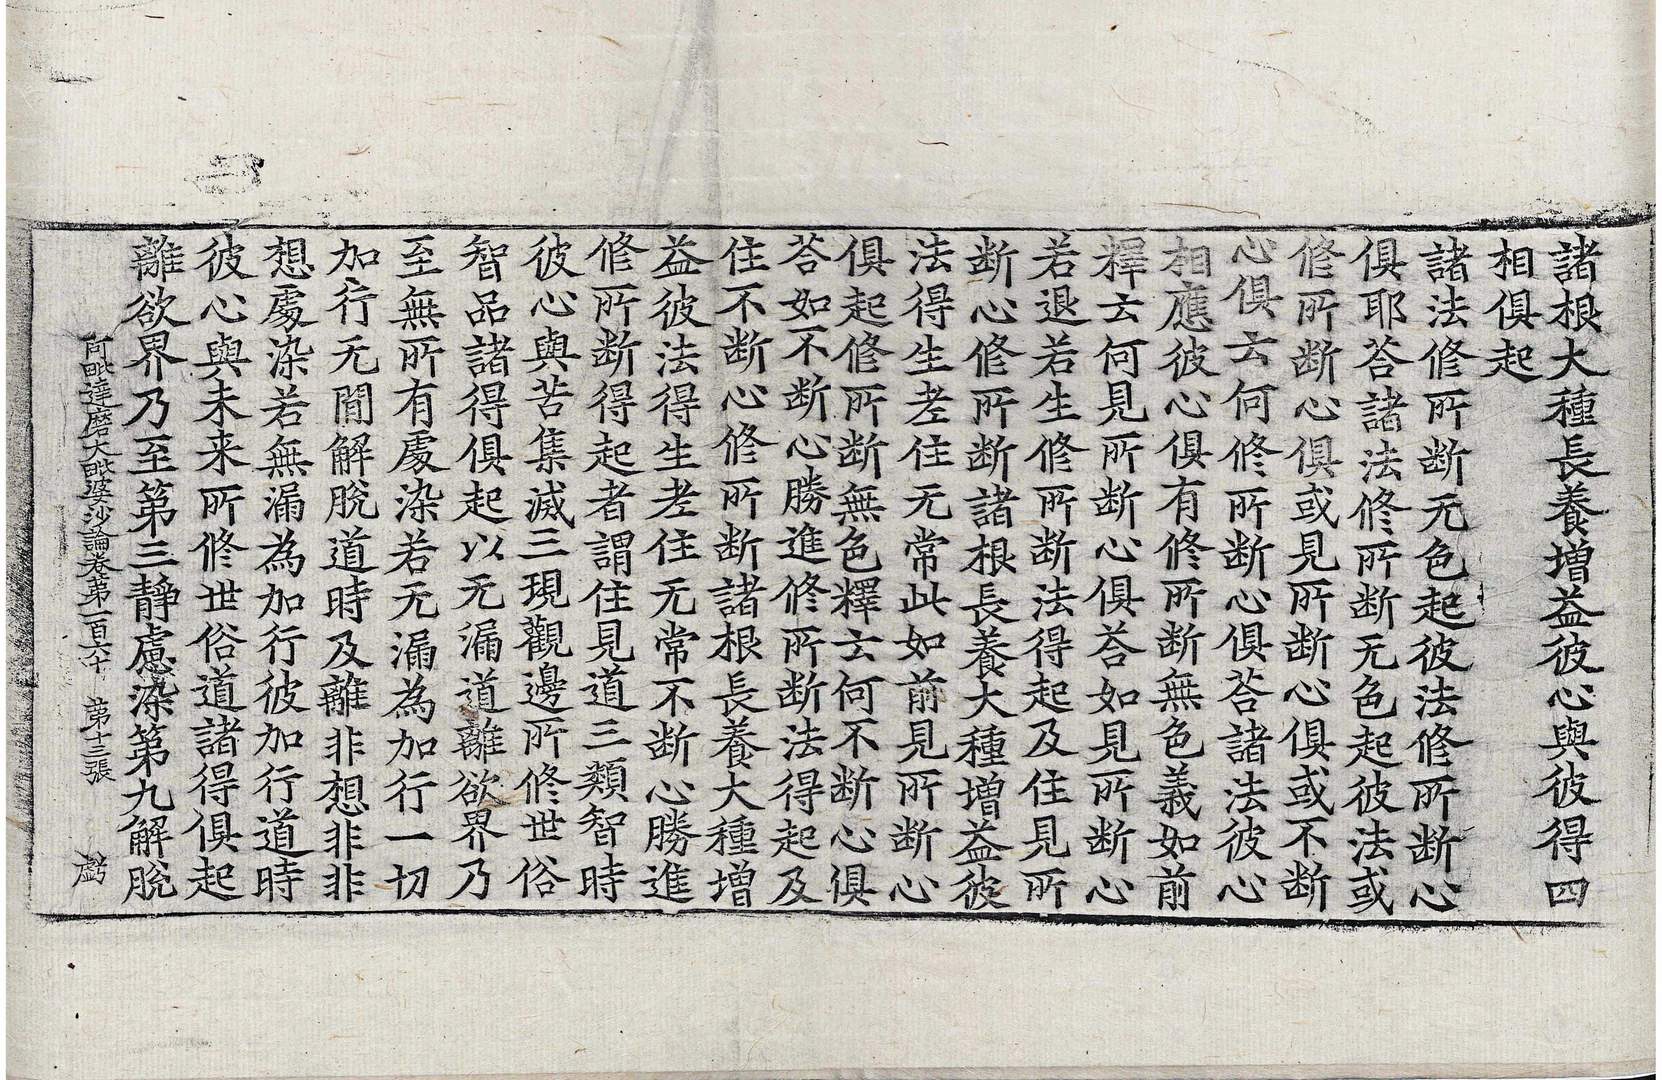 諸根大種長養增益彼心與彼得四
相俱起
諸法修所断无色起彼法修所断心
俱耶荅諸法修所断无色起彼法或
修所断心俱或見所断心俱或不断
心俱云何修所断心俱荅諸法彼心
相應彼心俱有修所断無色義如前
釋云何見所断心俱荅如見所断心
若退若生修所断法得起及住見所
断心修所断諸根長養大種增益彼
法得生老住无常此如前見所断心
俱起修所断無色釋云何不断心俱
荅如不断心勝進修所断法得起及
住不断心修所断諸根長養大種增
益彼法得生老住无常不断心勝進
修所断得起者謂住見道三類智時
彼心與苦集滅三現觀邊所修世俗
智品諸得俱起以无漏道離欲界乃
至無所有處染若无漏為加行一切
加行无間解脫道時及離非想非非
想處染若無漏為加行彼加行道時
彼心與未来所修世俗道諸得俱起
離欲界乃至第三靜慮染第九解脫
阿毗達磨大毗婆沙論卷第一百六十 第十三張 虧